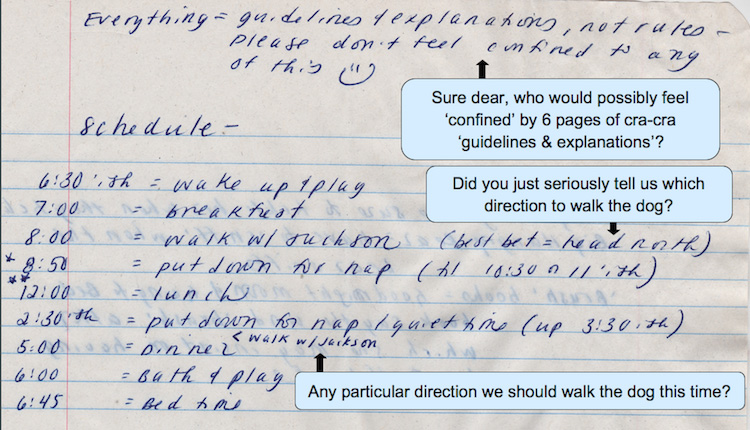 Everything = guidelines & explanations, not rules -
please don't feel confined to any
of this
Sure dear, who would possibly feel
'confined' by 6 pages of cra-cra
'guidelines & explanations'?
Schedule -
6:30 'ish = wake up & play
Did you just seriously tell us which
direction to walk the dog?
7:00 = breakfast
8:00 = walk w/ Jackson (best bet = head north)
* = put down for nap (til 10:30 or 11'ish)
** 12:00 = lunch
2:30'ish = put down for nap / quiet time (up 3:30'ish)
5:00 = Dinner < walk w/ Jackson
6:00 = Bath & play
Any particular direction we should walk the dog this time?
6:45 = Bed time